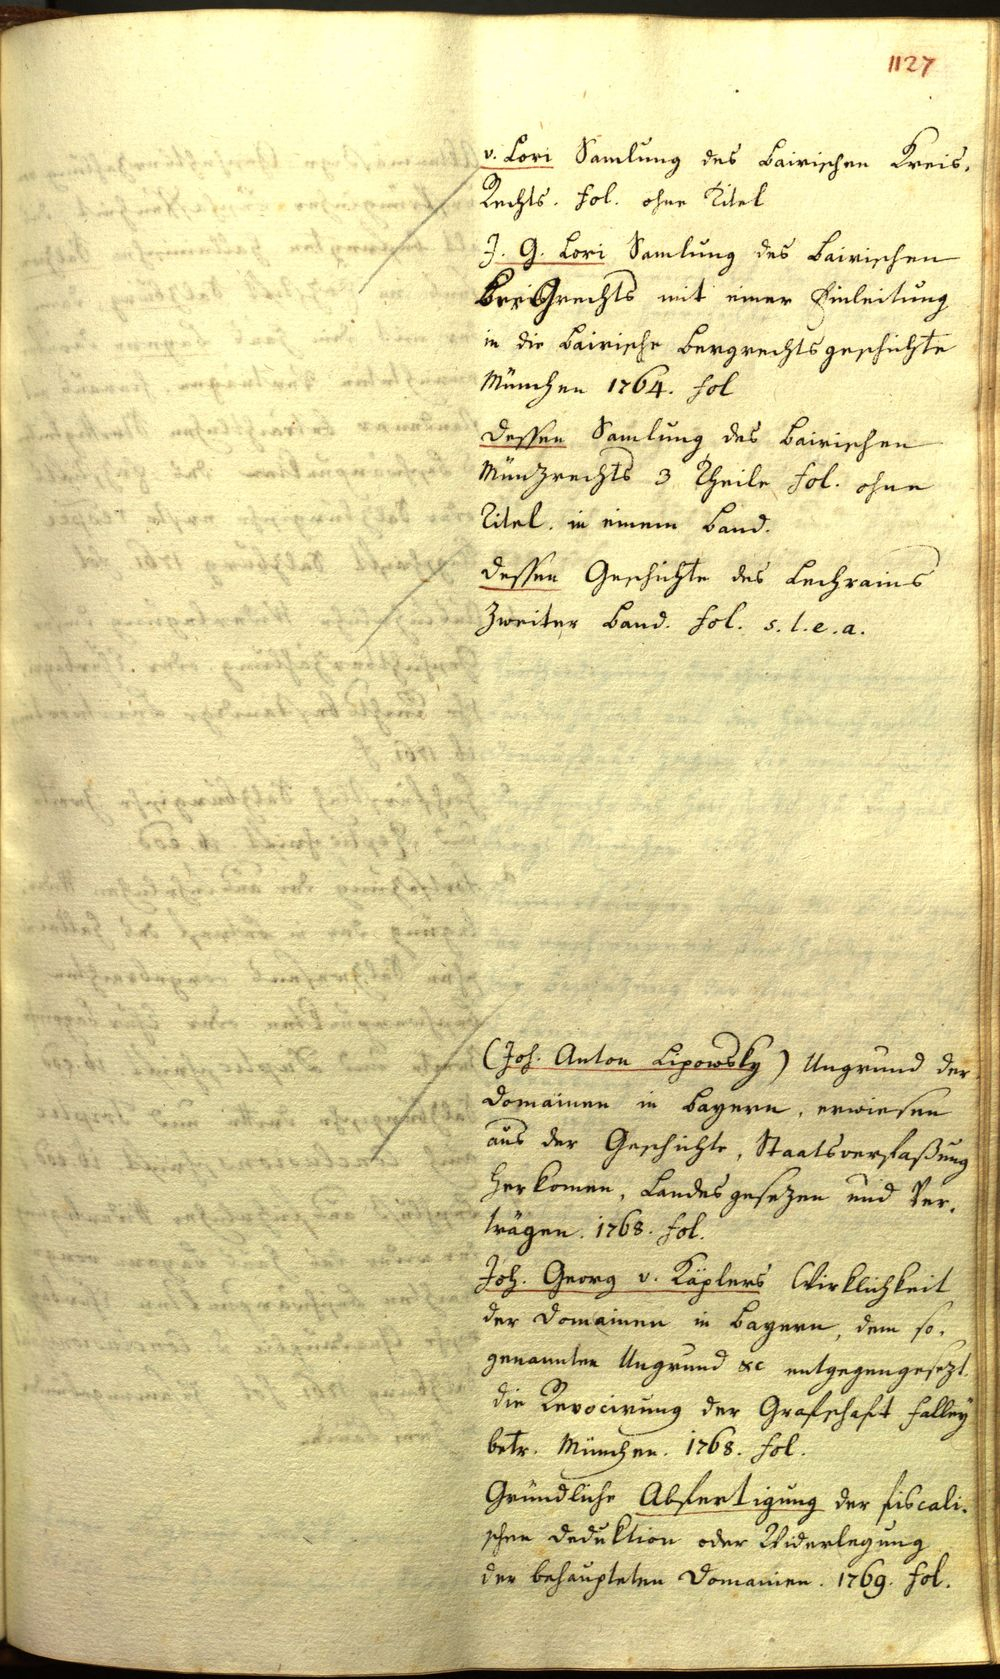 1127
v. Lori Samlung des Bairischen Kreis-
Rechts. fol. ohne Titel
J. G. Lori Samlung des Bairischen
Bergrechts mit einer Einleitung
in die Bairische Bergrechtsgeschichte
München 1764. fol
Dessen Samlung des Bairischen
Münzrechts 3 Theile fol. ohne
Titel. in einem Band.
Dessen Geschichte des Lechrains
Zweiter Band. fol. s. l. e. a.
(Joh. Anton Lipowsky) Ungrund der
Domainen in Bayern, erwiesen
aus der Geschichte, Staatsverfaßung
Herkomen, Landesgesezen und Ver-
trägen. 1768. fol.
Joh. Georg v. Käplers Wirklichkeit
der Domainen in Bayern, dem so-
genannten Ungrund &c entgegengesezt.
die Revocirung der Grafschaft Falley
betr. München. 1768. fol.
Gründliche Abfertigung der fiscali-
schen Deduktion oder Widerlegung
der behaupteten Domainen. 1769. fol.